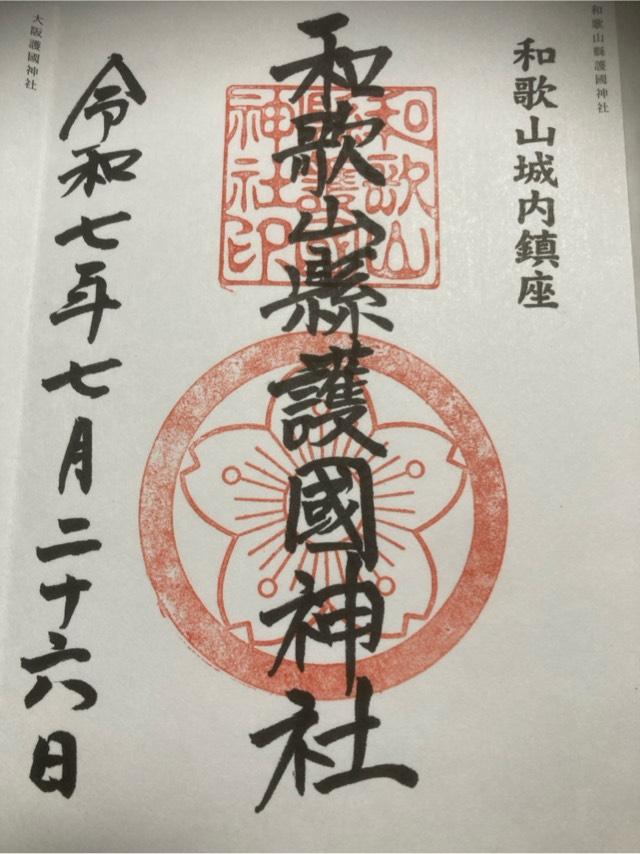 和歌山縣護國神社
和歌山城内鎮座
和歌山縣護國神社
和歌山
縣護國
神社印
令和七年七月二十六日
大阪護國神社